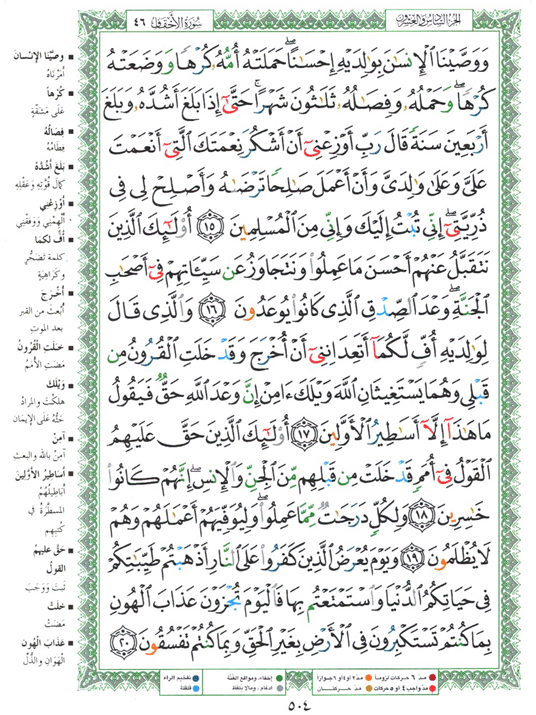 الجزء السادس والعشرون
سورة الأحقاف ٤٦
وَوَصَّيْنَا ٱلْإِنسَٰنَ بِوَٰلِدَيْهِ إِحْسَٰنًا ۖ حَمَلَتْهُ أُمُّهُۥ كُرْهًا وَوَضَعَتْهُ
كُرْهًا ۖ وَحَمْلُهُۥ وَفِصَٰلُهُۥ ثَلَٰثُونَ شَهْرًا ۚ حَتَّىٰٓ إِذَا بَلَغَ أَشُدَّهُۥ وَبَلَغَ
أَرْبَعِينَ سَنَةً قَالَ رَبِّ أَوْزِعْنِىٓ أَنْ أَشْكُرَ نِعْمَتَكَ ٱلَّتِىٓ أَنْعَمْتَ
عَلَىَّ وَعَلَىٰ وَٰلِدَىَّ وَأَنْ أَعْمَلَ صَٰلِحًا تَرْضَىٰهُ وَأَصْلِحْ لِى فِى
ذُرِّيَّتِىٓ ۖ إِنِّى تُبْتُ إِلَيْكَ وَإِنِّى مِنَ ٱلْمُسْلِمِينَ ١٥ أُو۟لَٰٓئِكَ ٱلَّذِينَ
نَتَقَبَّلُ عَنْهُمْ أَحْسَنَ مَا عَمِلُوا۟ وَنَتَجَاوَزُ عَن سَيِّـَٔاتِهِمْ فِىٓ أَصْحَٰبِ
ٱلْجَنَّةِ ۖ وَعْدَ ٱلصِّدْقِ ٱلَّذِى كَانُوا۟ يُوعَدُونَ ١٦ وَٱلَّذِى قَالَ
لِوَٰلِدَيْهِ أُفٍّ لَّكُمَآ أَتَعِدَانِنِىٓ أَنْ أُخْرَجَ وَقَدْ خَلَتِ ٱلْقُرُونُ مِن
قَبْلِى وَهُمَا يَسْتَغِيثَانِ ٱللَّهَ وَيْلَكَ ءَامِنْ إِنَّ وَعْدَ ٱللَّهِ حَقٌّ فَيَقُولُ
مَا هَٰذَآ إِلَّآ أَسَٰطِيرُ ٱلْأَوَّلِينَ ١٧ أُو۟لَٰٓئِكَ ٱلَّذِينَ حَقَّ عَلَيْهِمُ
ٱلْقَوْلُ فِىٓ أُمَمٍ قَدْ خَلَتْ مِن قَبْلِهِم مِّنَ ٱلْجِنِّ وَٱلْإِنسِ ۖ إِنَّهُمْ كَانُوا۟
خَٰسِرِينَ ١٨ وَلِكُلٍّ دَرَجَٰتٌ مِّمَّا عَمِلُوا۟ ۖ وَلِيُوَفِّيَهُمْ أَعْمَٰلَهُمْ وَهُمْ
لَا يُظْلَمُونَ ١٩ وَيَوْمَ يُعْرَضُ ٱلَّذِينَ كَفَرُوا۟ عَلَى ٱلنَّارِ أَذْهَبْتُمْ طَيِّبَٰتِكُمْ
فِى حَيَاتِكُمُ ٱلدُّنْيَا وَٱسْتَمْتَعْتُم بِهَا فَٱلْيَوْمَ تُجْزَوْنَ عَذَابَ ٱلْهُونِ
بِمَا كُنتُمْ تَسْتَكْبِرُونَ فِى ٱلْأَرْضِ بِغَيْرِ ٱلْحَقِّ وَبِمَا كُنتُمْ تَفْسُقُونَ ٢٠
وصَّيْنَا الإنسانَ
أمَرْنَاهُ
كُرْهاً
على مَشقّةٍ
فِصَالُهُ
فِطَامُهُ
بَلَغَ أَشُدَّهُ
كمالَ قُوَّتِه وعَقْلِهِ
أَوْزِعْنِي
ألْهِمْنِي وَوفِّقْنِي
أُفٍّ لكُمَا
كلمة تَضَجُّرٍ
وكراهيةٍ
أُخْرَجَ
أُبْعثَ من القبرِ
بعد الموتِ
خلَتِ القُرُونُ
مَضَتِ الأُمَمُ
وَيْلَكَ
هلكْتَ والمرادُ
حثُّهُ على الإيمان
آمِنْ
آمِنْ بالله والبعث
أساطيرُ الأوَّلينَ
أباطيلُهُمْ
المسطَّرَةُ في
كُتبِهِم
حَقَّ عليهمُ
القولُ
ثبتَ وَوَجَبَ
خلَتْ
مَضَتْ
عذابَ الهُونِ
الهَوَانِ والذُّلِّ
مدّ ٦ حركات لزوماً
مدّ ٢ أو ٤ أو ٦ جوازاً
إخفاء، ومواقع الغُنَّة
تفخيم الراء
مدّ واجب ٤ أو ٥ حركات
مدّ حركتان
ادغام ، وما لا يُلفظ
قلقلة
٥٠٤